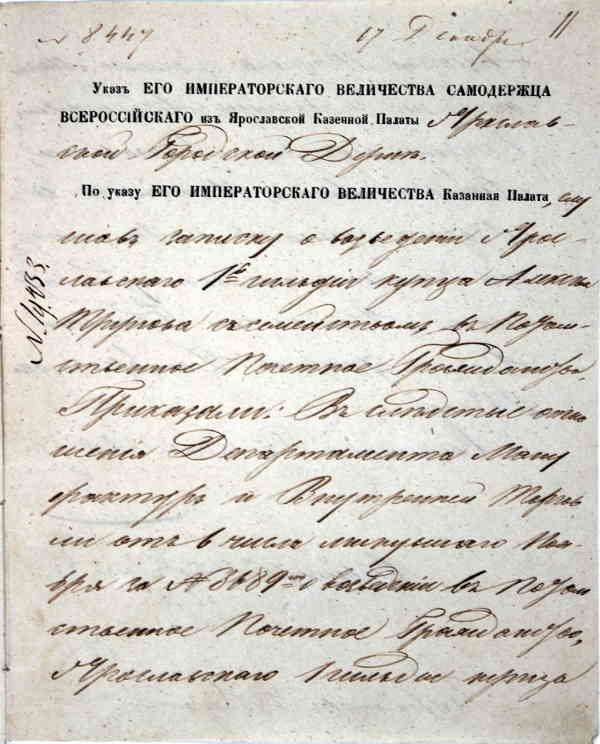 № 8447 17 Декабря 11
Указъ ЕГО ИМПЕРАТОРСКАГО ВЕЛИЧЕСТВА САМОДЕРЖЦА
ВСЕРОССІЙСКАГО изъ Ярославской Казенной Палаты Ярослав-
ской Городской Думѣ.
По указу ЕГО ИМПЕРАТОРСКАГО ВЕЛИЧЕСТВА Казанная Палата, слу
шавъ записку о возведеніи Яро-
славскаго 1й гильдіи купца Алексѣя
съ семействомъ въ Потом-
ственное Почетное Гражданство,
Приказали: Въ слѣдствіе отно
шенія Департамента Ману
фактуръ и Внутренней Торгов
ли отъ 8 числа минувшаго Но-
ября за № 3689 о возведеніи въ Потом
ственное Почетное Гражданство,
Ярославскаго 1 гильдіи купца
№ 14433.